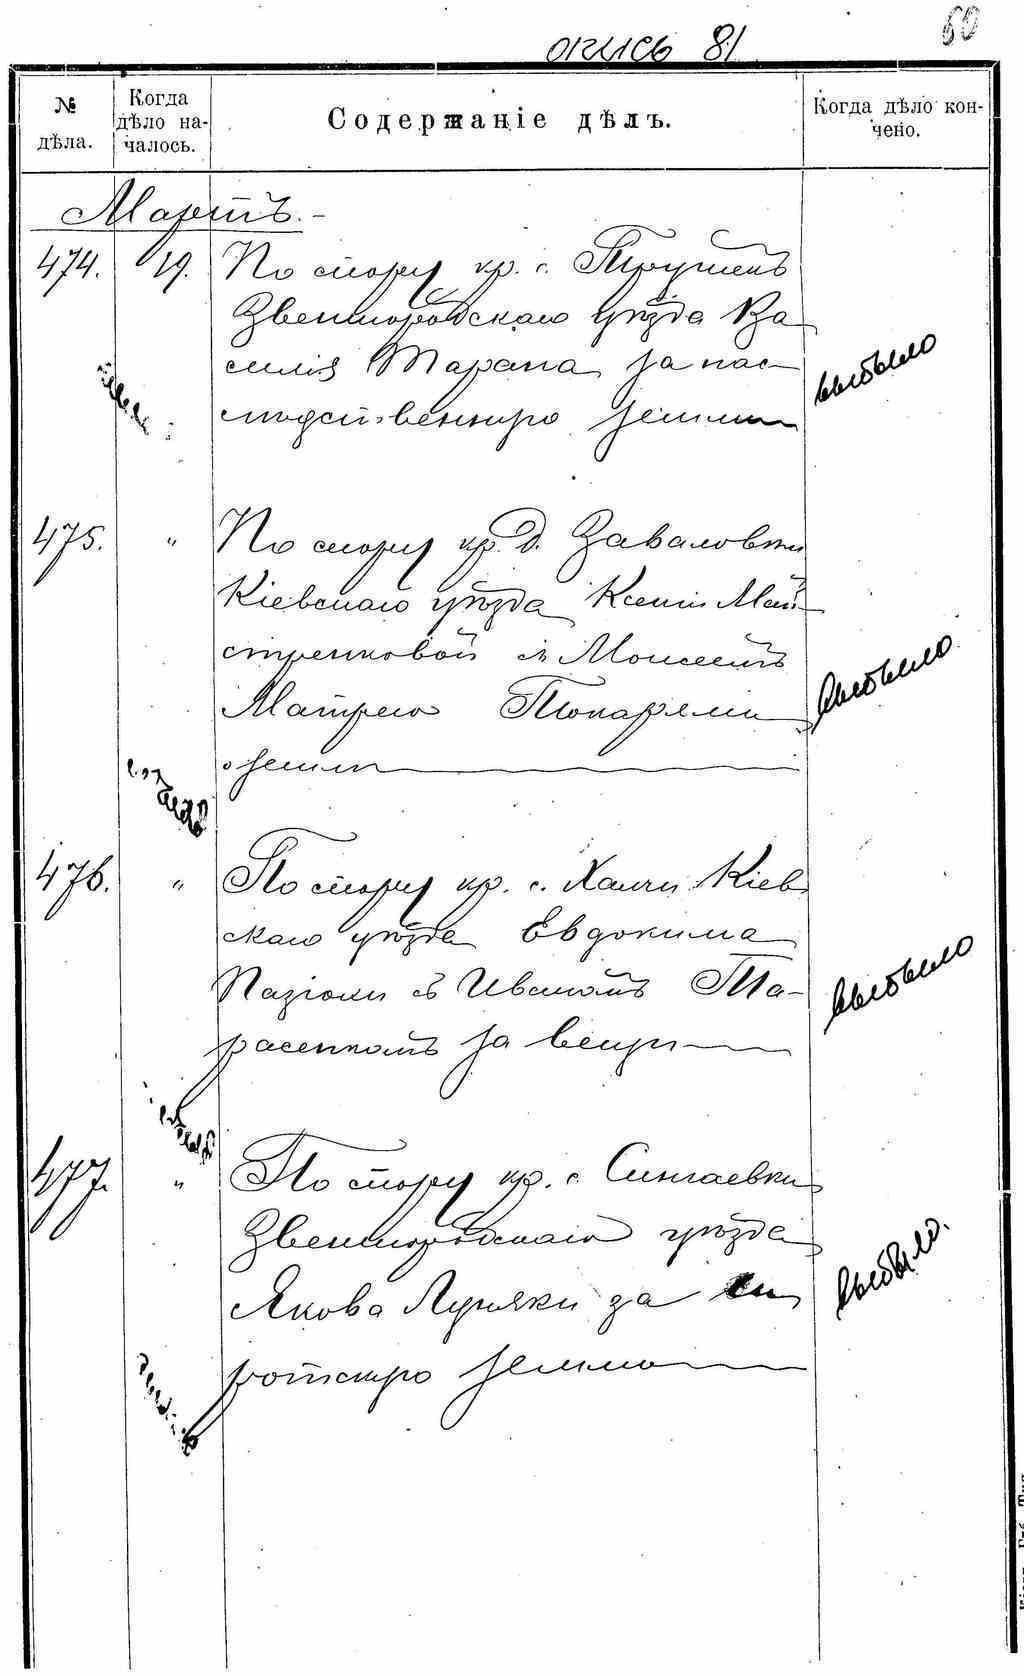 60
опись 81
№ дѣла.
Когда дѣло на-
чалось.
Содержаніе дѣлъ.
Когда дѣло кон-
чено.
Мартъ.
474. 19. По спору кр. с.
Звенигородскаго уѣзда Ва
силія Тарана за нас-
лѣдственную землю
выбыло
475. " По спору кр. д. Заваловки
Кіевскаго уѣзда Ксеніи Май-
стренковой съ Моисеемъ
Токарями
о земли
выбыло
476. " По спору кр. с. Халчи Кіев
скаго уѣзда Евдокима
Пазюки съ Иваномъ Та-
расенкомъ за вещи
выбыло
477. " По спору кр. с.
Звенигородскаго уѣзда
Якова за си
ротскую землю
выбыло.